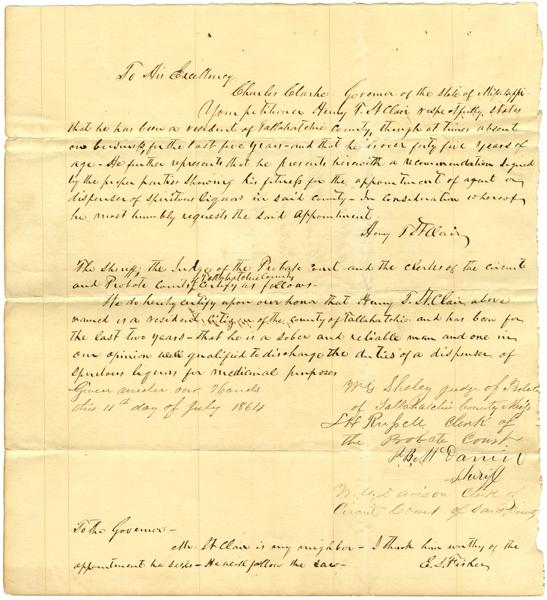 To His Excellency
Charles Clarke Governor of the state of Mississippi
Your petitioner Henry T. St Clair respectfully states
that he has been a resident of Tallahatchie County, though at times absent
on business, for the last five years - and that he is over forty five years of
age - He further represents that he presents herewith a recommendation signed
by the proper parties showing his fitness for the appointment of agent or
dispenser of spiritous liquors in said county - In consideration whereof
he most humbly requests the said appointment
Henry T St Clair
The Sheriff, the Judge of the Probate court and the clerks of the circuit
and Probate County Tallahatchie County certify as follows -
We do hereby certify upon our honor that Henry T. St Clair above
named is a resident citizen of the county of Tallahatchie and has been for
the last two years - that he is a sober and reliable man and one in
our opinion well qualified to discharge the duties of a dispenser of
spiritous liquors for medicinal purposes
Given under our Hands
this 11th day of July 1864
Sheley judge of Probate
of Tallahatchie County Miss
S H Russell Clerk of
the Probate Court
McDaniel
Sheriff
Davison Clerk
Circuit Court of Said County
To the Governor -
Mr. St Clair is my neighbor - I think him worthy of the
appointment he seeks - He will follow the law -
E. S. Fisher